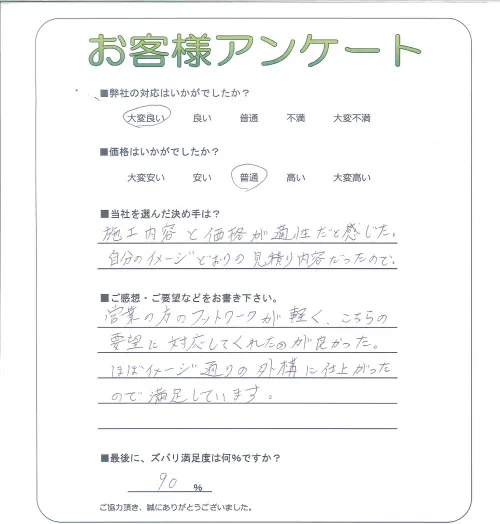 お客様アンケート
■弊社の対応はいかがでしたか？
大変良い 良い 普通 不満 大変不満
■価格はいかがでしたか？
大変安い 安い 普通 高い 大変高い
■当社を選んだ決め手は？
施工内容と価格が適性だと感じた。
自分のイメージどおりの見積り内容だったので。
■ご感想・ご要望などをお書き下さい。
営業の方のフットワークが軽く、こちらの
要望に対応してくれたのが良かった。
ほぼイメージ通りの外構に仕上がった
ので満足しています。
■最後に、ズバリ満足度は何%ですか？
90 %
ご協力頂き、誠にありがとうございました。